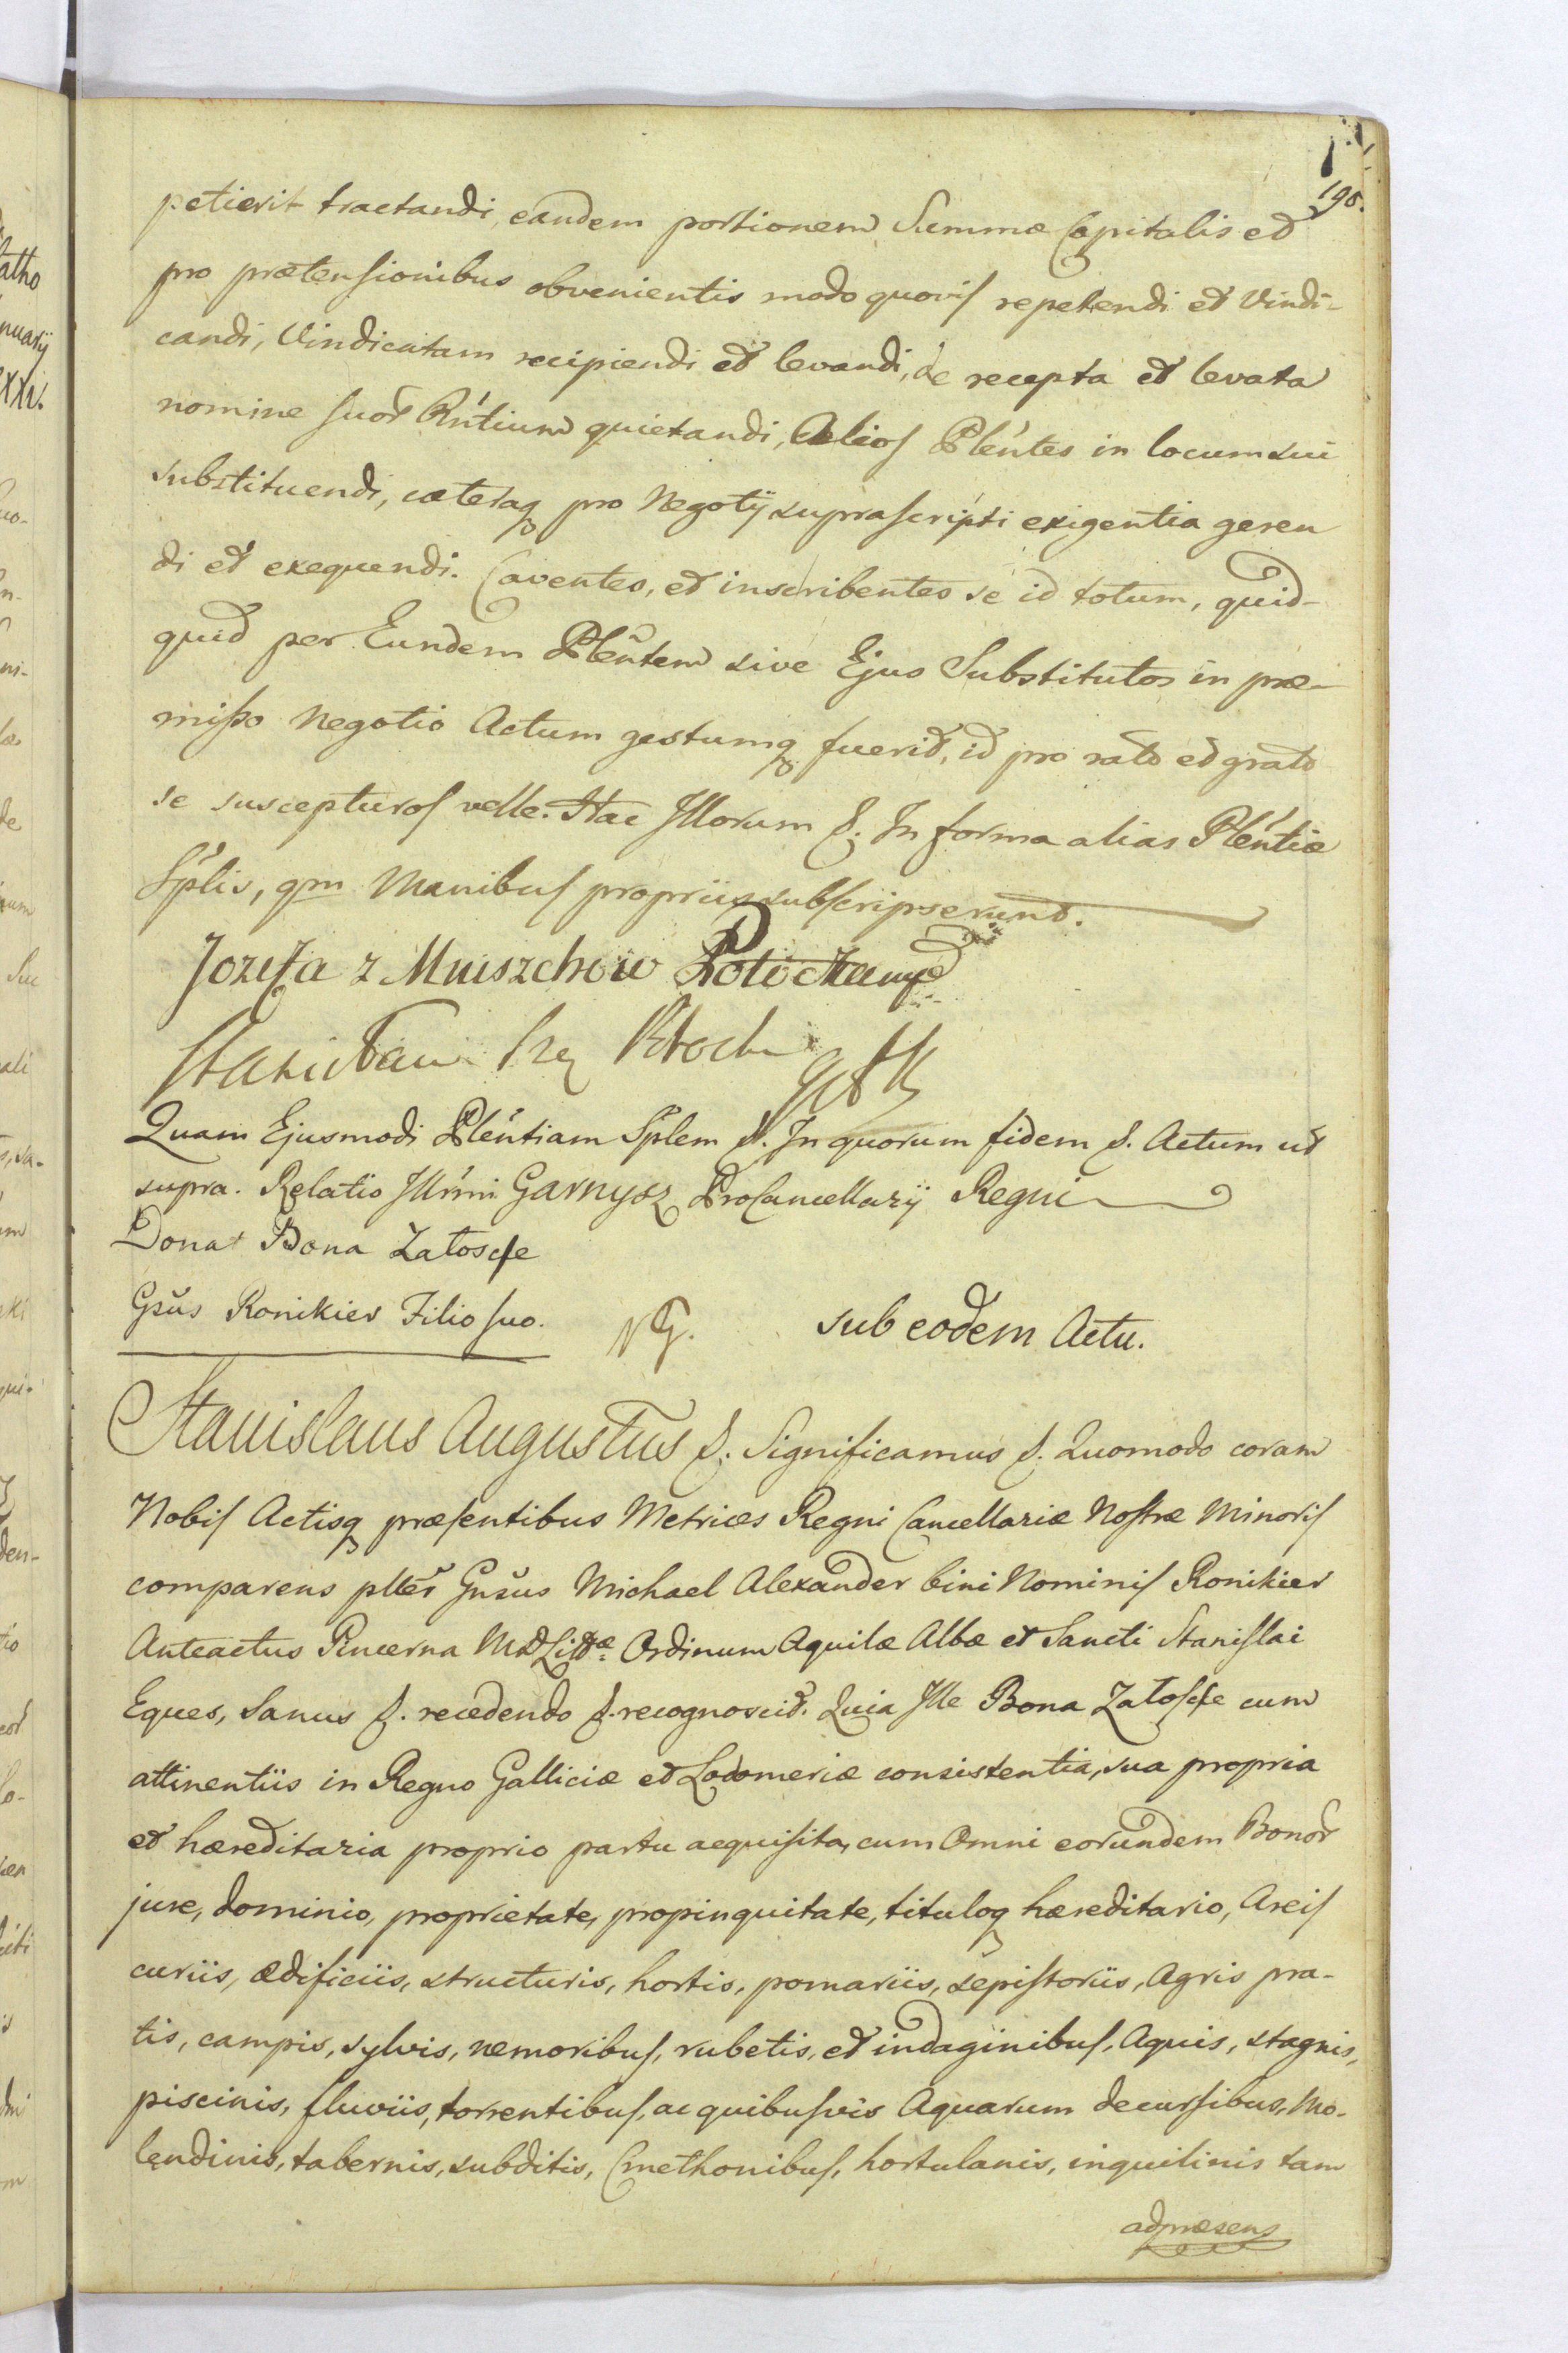 198.
petierit tractandi, eandem portionem Summæ Capitalis et
pro prætensionibus obvenientis modo quovis repetendi et Vindi-
candi, Vindicatam recipiendi et levandi, de recepta et levata
nomine suor Rntium quietandi, Alios Plentes in locum sui
substituendi, cæteraq pro Negotij suprascripti exigentia geren
di et exequendi. Caventes, et inscribentes se id totum, quid-
quid per Eundem Plentem sive Ejus Substitutos in præ-
misso Negotio Actum gestumq fuerit, id pro rato et grato
se suscepturos velle. Hac Illorum &. In forma alias Plentiæ
Splis, qm Manibus propriis subscripserunt.
Jozefa z Mniszchow Potocka mp
Stanisław Szcz Potocki
Quam Ejusmodi Plentiam Splem &. In quorum fidem &. Actum ut
supra. Relatio Illrmi Garnysz ProCancellarij Regni
Donat Bona Załosce
Gsus Ronikier Filio suo.
NG. sub eodem Actu.
Stanislaus Augustus &. Significamus &. Quomodo coram
Nobis Actisq præsentibus Metrices Regni Cancellariæ Nostræ Minoris
comparens plter Gnsus Michael Alexander bini Nominis Ronikier
Anteactus Pincerna MDLittæ Ordinum Aquilæ Albæ et Sancti Stanislai
Eques, Sanus &. recedendo &. recognoscit. Quia Ille Bona Załosce cum
attinentiis in Regno Galliciæ et Lodomeriæ consistentia, sua propria
et hæreditaria proprio partu acquisita, cum Omni eorundem Bonor
jure, dominio, proprietate, propinquitate, tituloq hæreditario, Areis
curiis, ædificiis, structuris, hortis, pomariis, sepistoriis, Agris pra-
tis, campis, sylvis, nemoribus, rubetis, et indaginibus, Aquis, stagnis,
piscinis, fluviis, torrentibus, ac quibusvis Aquarum decursibus, Mo-
lendinis, tabernis, subditis, Cmethonibus, hortulanis, inquilinis tam
ad præsens